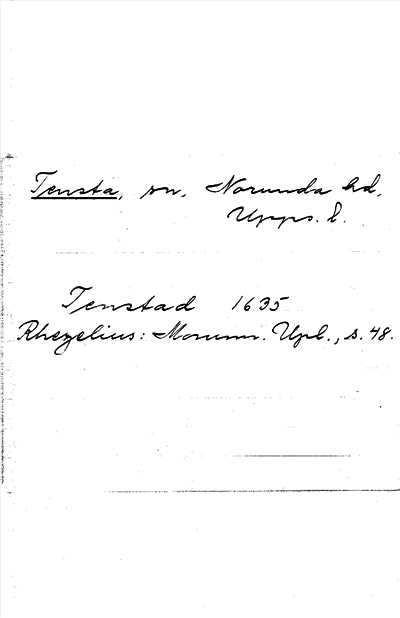 Tensta, sn. Norunda hd,
Upps. l.
Tenstad 1635
Rhezelius: Monum. Upl., s. 48.